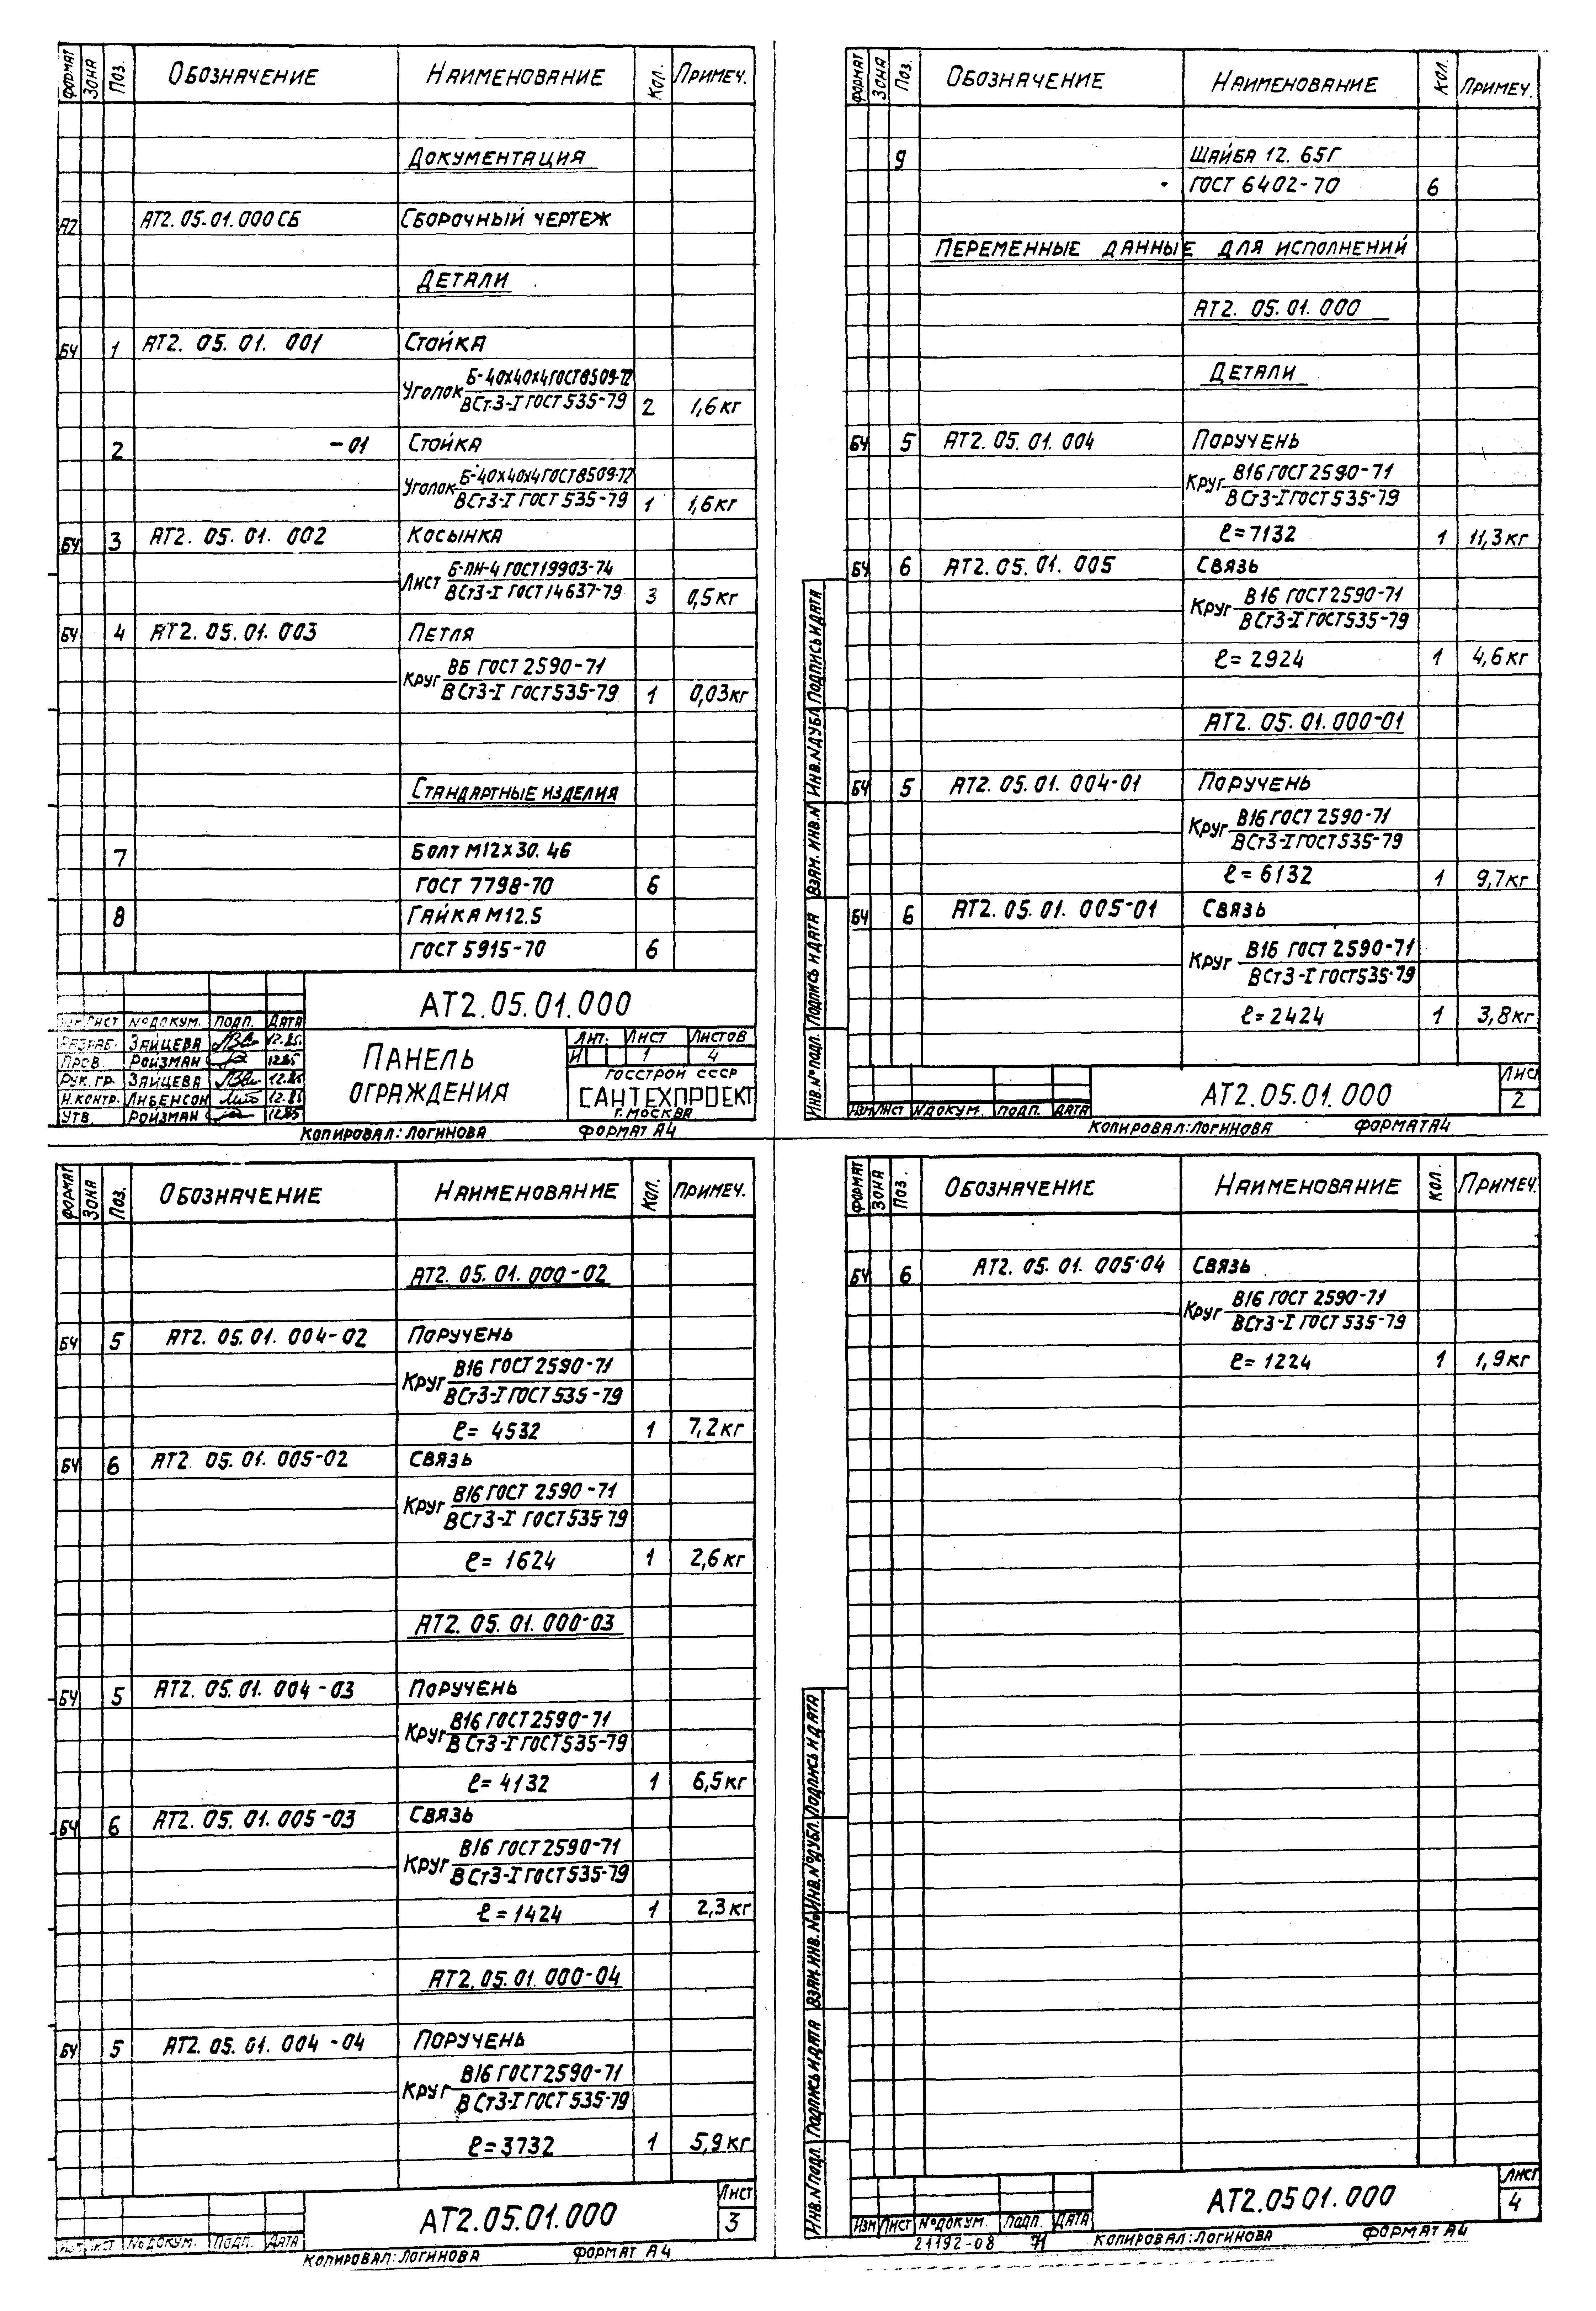 ФОРМАТ ЗОНА Поз. ОБОЗНАЧЕНИЕ НАИМЕНОВАНИЕ Кол. ПРИМЕЧ.
ДОКУМЕНТАЦИЯ
А2 АТ2.05.01.000СБ СБОРОЧНЫЙ ЧЕРТЕЖ
ДЕТАЛИ
БЧ 1 АТ2. 05. 01. 001 СТОЙКА
Уголок Б-40х40х4ГОСТ8509-72
ВСт3-I ГОСТ535-79 2 1,6кг
2 -01 СТОЙКА
Уголок Б-40х40х4ГОСТ8509-72
ВСт3-I ГОСТ535-79 1 1,6кг
БЧ 3 АТ2. 05. 01. 002 КОСЫНКА
Лист Б-ПН-4 ГОСТ19903-74
ВСт3-I ГОСТ14637-79 3 0,5кг
БЧ 4 АТ2. 05. 01. 003 ПЕТЛЯ
Круг В6 ГОСТ2590-71
ВСт3-I ГОСТ535-79 1 0,03кг
СТАНДАРТНЫЕ ИЗДЕЛИЯ
7 БОЛТ М12х30.46
ГОСТ 7798-70 6
8 ГАЙКА М12.5
ГОСТ 5915-70 6
АТ2.05.01.000
ЛИСТ №ДОКУМ. ПОДП. ДАТА
РАЗРАБ. ЗАЙЦЕВА 12.85
ПРОВ. РОЙЗМАН 12.85
РУК.ГР. ЗАЙЦЕВА 12.85
Н.КОНТР. ЛИБЕНСОН 12.85
УТВ. РОЙЗМАН 12.85
ПАНЕЛЬ
ОГРАЖДЕНИЯ
ЛИТ. ЛИСТ ЛИСТОВ
И 1 4
ГОССТРОЙ СССР
САНТЕХПРОЕКТ
Г.МОСКВА
КОПИРОВАЛ: ЛОГИНОВА ФОРМАТ А4
ФОРМАТ ЗОНА Поз. ОБОЗНАЧЕНИЕ НАИМЕНОВАНИЕ Кол. ПРИМЕЧ.
9 ШАЙБА 12. 65Г
ГОСТ 6402-70 6
ПЕРЕМЕННЫЕ ДАННЫЕ ДЛЯ ИСПОЛНЕНИЙ
АТ2. 05. 01. 000
ДЕТАЛИ
БЧ 5 АТ2. 05. 01. 004 ПОРУЧЕНЬ
Круг В16 ГОСТ2590-71
ВСт3-I ГОСТ535-79
ℓ=7132 1 11,3кг
БЧ 6 АТ2. 05. 01. 005 СВЯЗЬ
Круг В16 ГОСТ2590-71
ВСт3-I ГОСТ535-79
ℓ=2924 1 4,6кг
АТ2. 05. 01. 000-01
БЧ 5 АТ2. 05. 01. 004-01 ПОРУЧЕНЬ
Круг В16 ГОСТ2590-71
ВСт3-I ГОСТ535-79
ℓ=6132 1 9,7кг
БЧ 6 АТ2. 05. 01. 005-01 СВЯЗЬ
Круг В16 ГОСТ2590-71
ВСт3-I ГОСТ535-79
ℓ=2424 1 3,8кг
ИНВ.№ПОДЛ. ПОДПИСЬ И ДАТА ВЗАМ. ИНВ.№ ИНВ.№ДУБЛ. ПОДПИСЬ И ДАТА
ИЗМ ЛИСТ №ДОКУМ. ПОДП. ДАТА
АТ2.05.01.000
ЛИСТ
2
КОПИРОВАЛ: ЛОГИНОВА ФОРМАТ А4
ФОРМАТ ЗОНА Поз. ОБОЗНАЧЕНИЕ НАИМЕНОВАНИЕ Кол. ПРИМЕЧ.
АТ2. 05. 01. 000-02
БЧ 5 АТ2. 05. 01. 004-02 ПОРУЧЕНЬ
Круг В16 ГОСТ2590-71
ВСт3-I ГОСТ535-79
ℓ=4532 1 7,2кг
БЧ 6 АТ2. 05. 01. 005-02 СВЯЗЬ
Круг В16 ГОСТ2590-71
ВСт3-I ГОСТ535-79
ℓ=1624 1 2,6кг
АТ2. 05. 01. 000-03
БЧ 5 АТ2. 05. 01. 004-03 ПОРУЧЕНЬ
Круг В16 ГОСТ2590-71
ВСт3-I ГОСТ535-79
ℓ=4132 1 6,5кг
БЧ 6 АТ2. 05. 01. 005-03 СВЯЗЬ
Круг В16 ГОСТ2590-71
ВСт3-I ГОСТ535-79
ℓ=1424 1 2,3кг
АТ2. 05. 01. 000-04
БЧ 5 АТ2. 05. 01. 004-04 ПОРУЧЕНЬ
Круг В16 ГОСТ2590-71
ВСт3-I ГОСТ535-79
ℓ=3732 1 5,9кг
ИЗМ ЛИСТ №ДОКУМ. ПОДП. ДАТА
АТ2.05.01.000
ЛИСТ
3
КОПИРОВАЛ: ЛОГИНОВА ФОРМАТ А4
ФОРМАТ ЗОНА Поз. ОБОЗНАЧЕНИЕ НАИМЕНОВАНИЕ Кол. ПРИМЕЧ.
БЧ 6 АТ2. 05. 01. 005-04 СВЯЗЬ
Круг В16 ГОСТ 2590-71
ВСт3-I ГОСТ535-79
ℓ=1224 1 1,9кг
ИНВ.№ПОДЛ. ПОДПИСЬ И ДАТА ВЗАМ.ИНВ.№ ИНВ.№ДУБЛ. ПОДПИСЬ И ДАТА
ИЗМ ЛИСТ №ДОКУМ. ПОДП. ДАТА
АТ2.0501.000
ЛИСТ
4
21192-08 71 КОПИРОВАЛ: ЛОГИНОВА ФОРМАТ А4